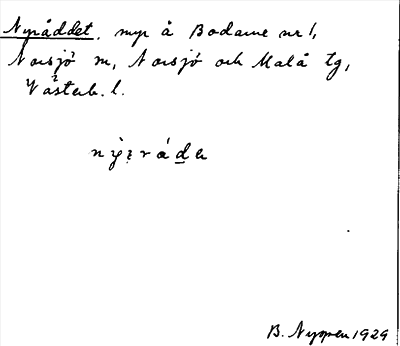 Nyråddet, myr å Bodarne nr 1,
Norsjö sn, Norsjö och Malå tg,
Västerb. l.
B. Nyman 1929